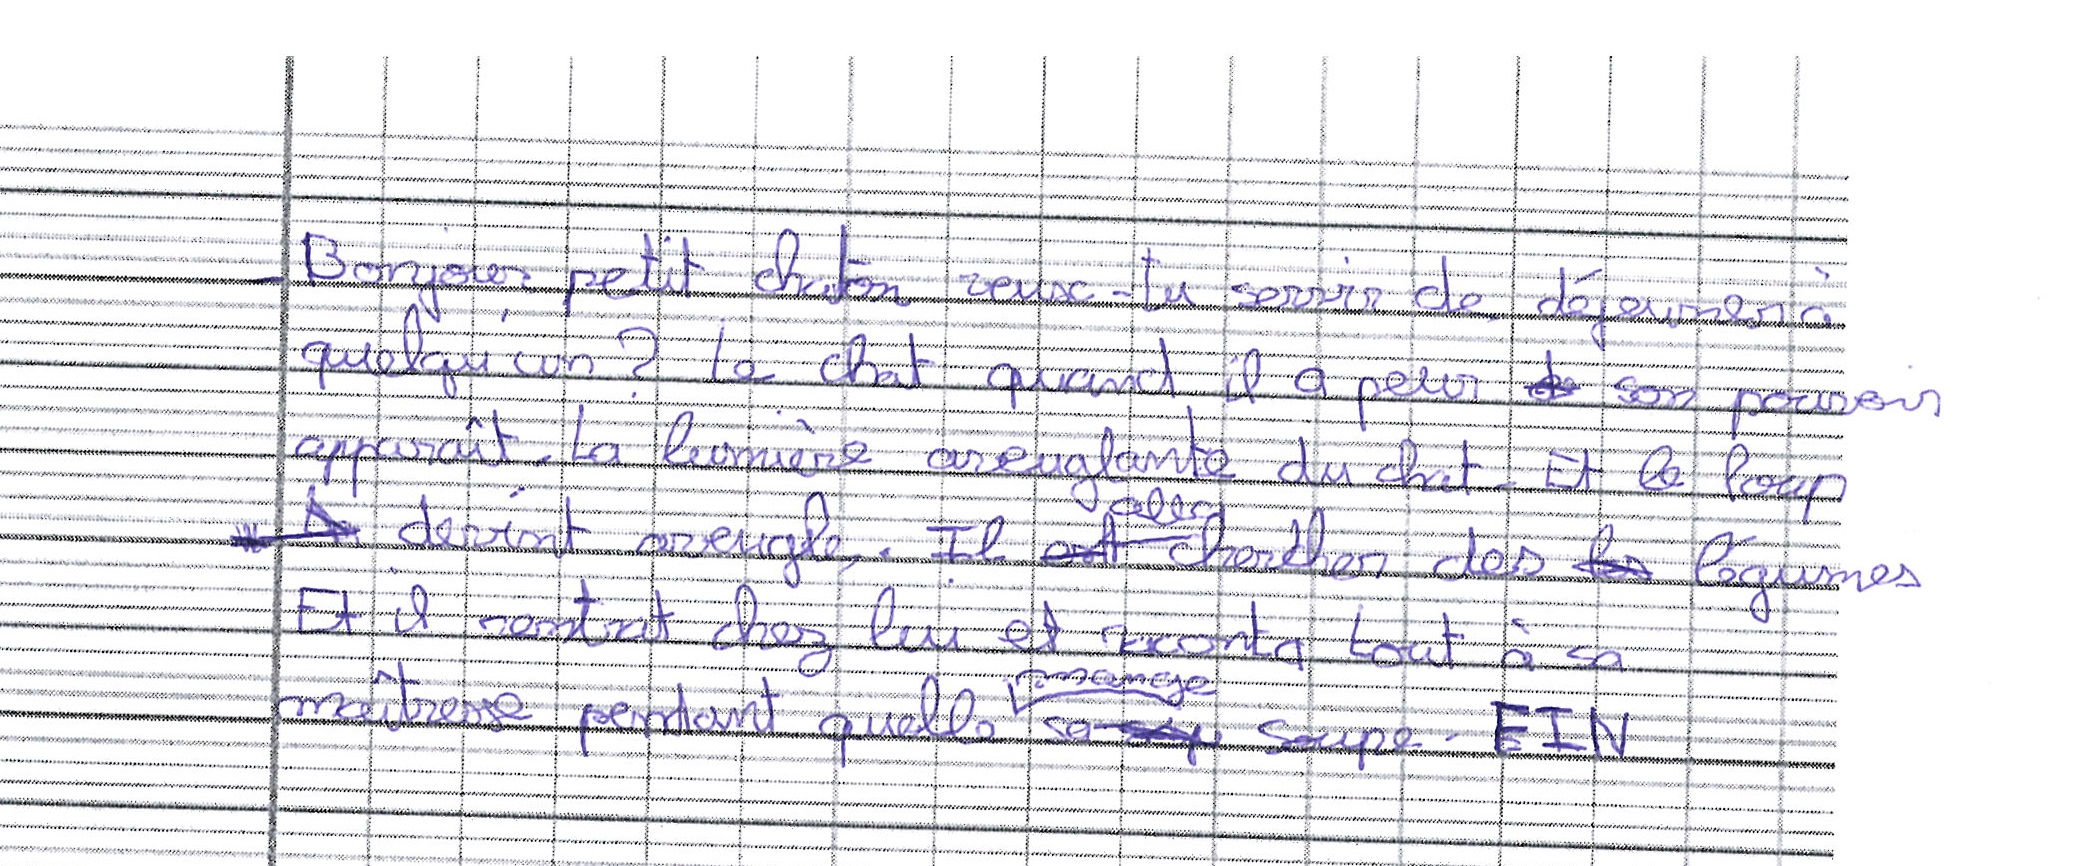 - Bonjour, petit chaton veux-tu servir de déjeuner à
quelqu'un ? Le chat quand il a peur son pouvoir
apparaît. La lumière aveuglante du chat. Et le loup
devint aveugle. Il aller chercher des légumes
Et il rentrat chez lui et raconta tout à sa
maîtresse pendant quelle mange sa soupe. FIN